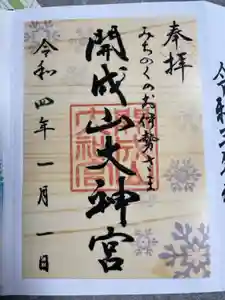 奉拝
みちのくのお伊勢さま
開成山大神宮
令和四年一月一日